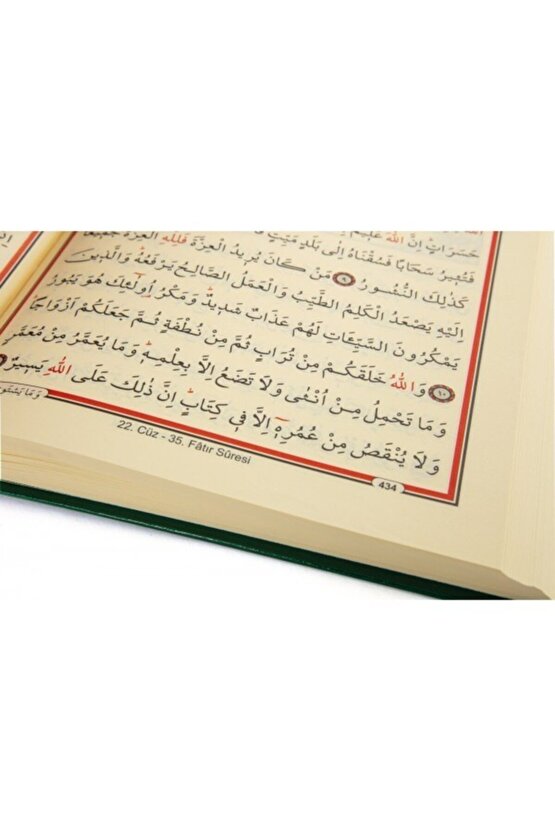 حَسَرَاتٍ اِنَّ اللّٰهَ عَلِيمٌ
فَتُثِيرُ سَحَابًا فَسُقْنَاهُ اِلٰى بَلَدٍ مَيِّتٍ
كَذٰلِكَ النُّشُورُ ٩ مَنْ كَانَ يُرِيدُ الْعِزَّةَ فَلِلّٰهِ الْعِزَّةُ جَمِيعًا
اِلَيْهِ يَصْعَدُ الْكَلِمُ الطَّيِّبُ وَالْعَمَلُ الصَّالِحُ يَرْفَعُهُ وَالَّذِينَ
يَمْكُرُونَ السَّيِّـَٔاتِ لَهُمْ عَذَابٌ شَدِيدٌ وَمَكْرُ اُو۬لٰٓئِكَ هُوَ يَبُورُ
١٠ وَاللّٰهُ خَلَقَكُمْ مِنْ تُرَابٍ ثُمَّ مِنْ نُطْفَةٍ ثُمَّ جَعَلَكُمْ اَزْوَاجًا
وَمَا تَحْمِلُ مِنْ اُنْثٰى وَلَا تَضَعُ اِلَّا بِعِلْمِهِ وَمَا يُعَمَّرُ مِنْ مُعَمَّرٍ
وَلَا يُنْقَصُ مِنْ عُمُرِهِ اِلَّا فِي كِتَابٍ اِنَّ ذٰلِكَ عَلَى اللّٰهِ يَسِيرٌ
وَمَا يَسْتَوِي
22. Cüz - 35. Fâtır Sûresi
434